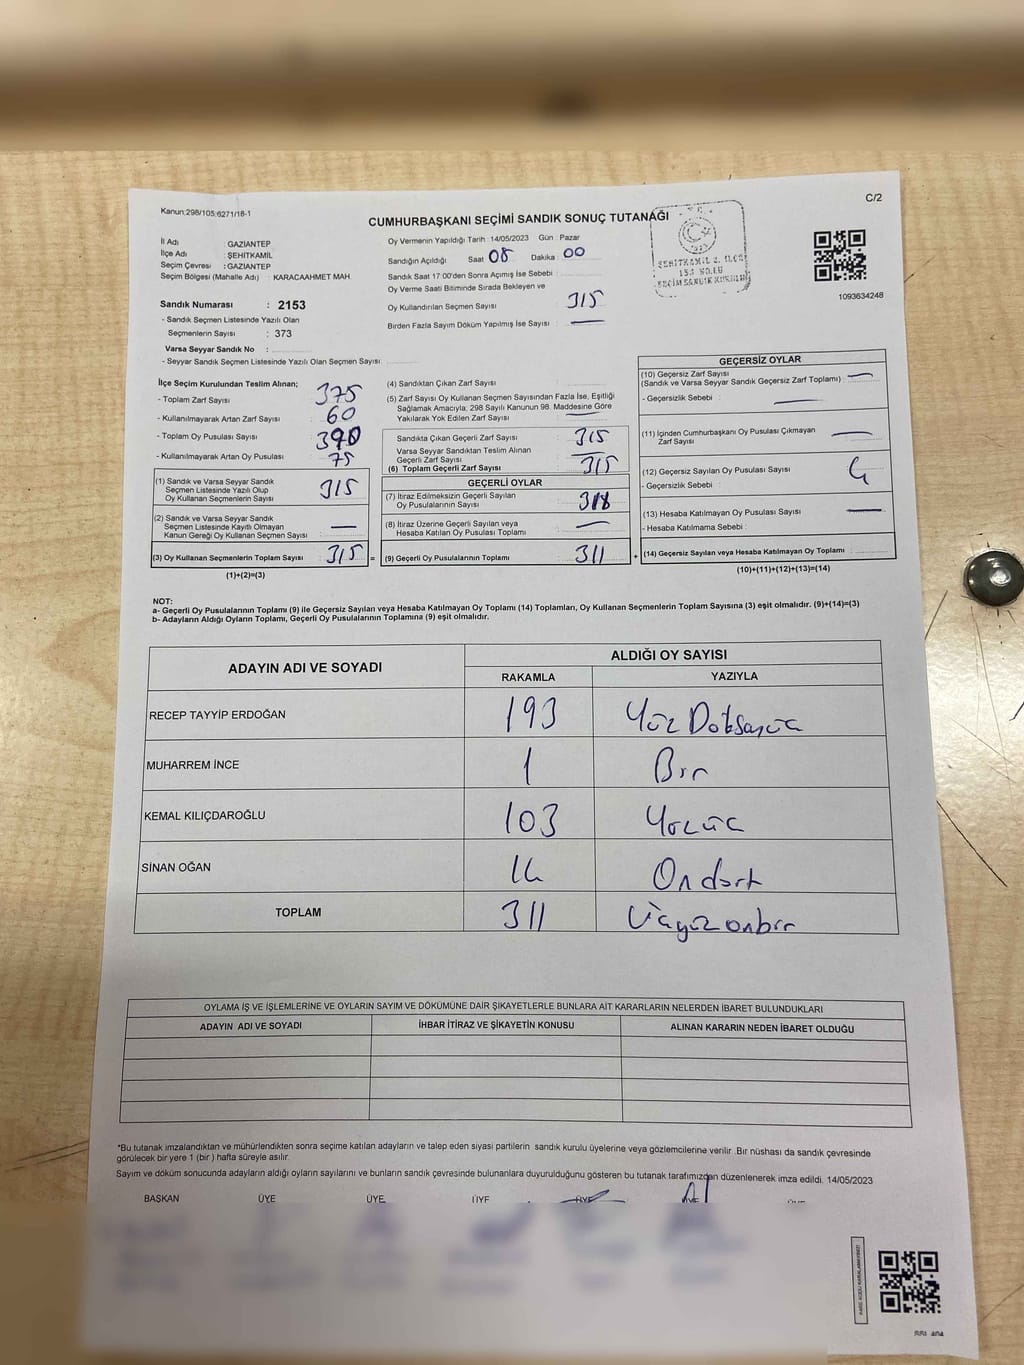 C/2
Kanun:298/105;6271/18-1
CUMHURBAŞKANI SEÇİMİ SANDIK SONUÇ TUTANAĞI
İl Adı : GAZİANTEP
İlçe Adı : ŞEHİTKAMİL
Seçim Çevresi : GAZİANTEP
Seçim Bölgesi (Mahalle Adı) : KARACAAHMET MAH.
Oy Vermenin Yapıldığı Tarih : 14/05/2023 Gün : Pazar
Sandığın Açıldığı Saat 08 Dakika : 00
Sandık Saat 17:00'den Sonra Açımış İse Sebebi :
Oy Verme Saati Bitiminde Sırada Bekleyen ve
Oy Kullandırılan Seçmen Sayısı 315
Birden Fazla Sayım Döküm Yapılmış İse Sayısı : —
ŞEHİTKAMİL 2. İLÇE
SEÇİM SANDIK KURULU
1093634248
Sandık Numarası : 2153
- Sandık Seçmen Listesinde Yazılı Olan
Seçmenlerin Sayısı : 373
Varsa Seyyar Sandık No :
- Seyyar Sandık Seçmen Listesinde Yazılı Olan Seçmen Sayısı :
İlçe Seçim Kurulundan Teslim Alınan;
- Toplam Zarf Sayısı 375
- Kullanılmayarak Artan Zarf Sayısı 60
- Toplam Oy Pusulası Sayısı 390
- Kullanılmayarak Artan Oy Pusulası 75
(1) Sandık ve Varsa Seyyar Sandık
Seçmen Listesinde Yazılı Olup
Oy Kullanan Seçmenlerin Sayısı 315
(2) Sandık ve Varsa Seyyar Sandık
Seçmen Listesinde Kayıtlı Olmayan
Kanun Gereği Oy Kullanan Seçmen Sayısı —
(3) Oy Kullanan Seçmenlerin Toplam Sayısı 315 =
(1)+(2)=(3)
(4) Sandıktan Çıkan Zarf Sayısı
(5) Zarf Sayısı Oy Kullanan Seçmen Sayısından Fazla İse, Eşitliği
Sağlamak Amacıyla; 298 Sayılı Kanunun 98. Maddesine Göre
Yakılarak Yok Edilen Zarf Sayısı —
Sandıkta Çıkan Geçerli Zarf Sayısı 315
Varsa Seyyar Sandıktan Teslim Alınan
Geçerli Zarf Sayısı —
(6) Toplam Geçerli Zarf Sayısı 315
GEÇERLİ OYLAR
(7) İtiraz Edilmeksizin Geçerli Sayılan
Oy Pusulalarının Sayısı
(8) İtiraz Üzerine Geçerli Sayılan veya
Hesaba Katılan Oy Pusulası Toplamı —
(9) Geçerli Oy Pusulalarının Toplamı 311 +
GEÇERSİZ OYLAR
(10) Geçersiz Zarf Sayısı —
(Sandık ve Varsa Seyyar Sandık Geçersiz Zarf Toplamı)
- Geçersizlik Sebebi : —
(11) İçinden Cumhurbaşkanı Oy Pusulası Çıkmayan
Zarf Sayısı —
(12) Geçersiz Sayılan Oy Pusulası Sayısı 4
- Geçersizlik Sebebi :
(13) Hesaba Katılmayan Oy Pusulası Sayısı —
- Hesaba Katılmama Sebebi :
(14) Geçersiz Sayılan veya Hesaba Katılmayan Oy Toplamı
(10)+(11)+(12)+(13)=(14)
NOT:
a- Geçerli Oy Pusulalarının Toplamı (9) ile Geçersiz Sayılan veya Hesaba Katılmayan Oy Toplamı (14) Toplamları, Oy Kullanan Seçmenlerin Toplam Sayısına (3) eşit olmalıdır. (9)+(14)=(3)
b- Adayların Aldığı Oyların Toplamı, Geçerli Oy Pusulalarının Toplamına (9) eşit olmalıdır.
ADAYIN ADI VE SOYADI ALDIĞI OY SAYISI
RAKAMLA YAZIYLA
RECEP TAYYİP ERDOĞAN 193 Yüz Doksanüç
MUHARREM İNCE 1 Bir
KEMAL KILIÇDAROĞLU 103 Yüzüç
SİNAN OĞAN 14 Ondört
TOPLAM 311 Üçyüzonbir
OYLAMA İŞ VE İŞLEMLERİNE VE OYLARIN SAYIM VE DÖKÜMÜNE DAİR ŞİKAYETLERLE BUNLARA AİT KARARLARIN NELERDEN İBARET BULUNDUKLARI
ADAYIN ADI VE SOYADI İHBAR İTİRAZ VE ŞİKAYETİN KONUSU ALINAN KARARIN NEDEN İBARET OLDUĞU
*Bu tutanak imzalandıktan ve mühürlendikten sonra seçime katılan adayların ve talep eden siyasi partilerin sandık kurulu üyelerine veya gözlemcilerine verilir .Bir nüshası da sandık çevresinde
görülecek bir yere 1 (bir ) hafta süreyle asılır.
Sayım ve döküm sonucunda adayların aldığı oyların sayılarını ve bunların sandık çevresinde bulunanlara duyurulduğunu gösteren bu tutanak tarafımızdan düzenlenerek imza edildi. 14/05/2023
BAŞKAN ÜYE ÜYE ÜYE ÜYE ÜYE